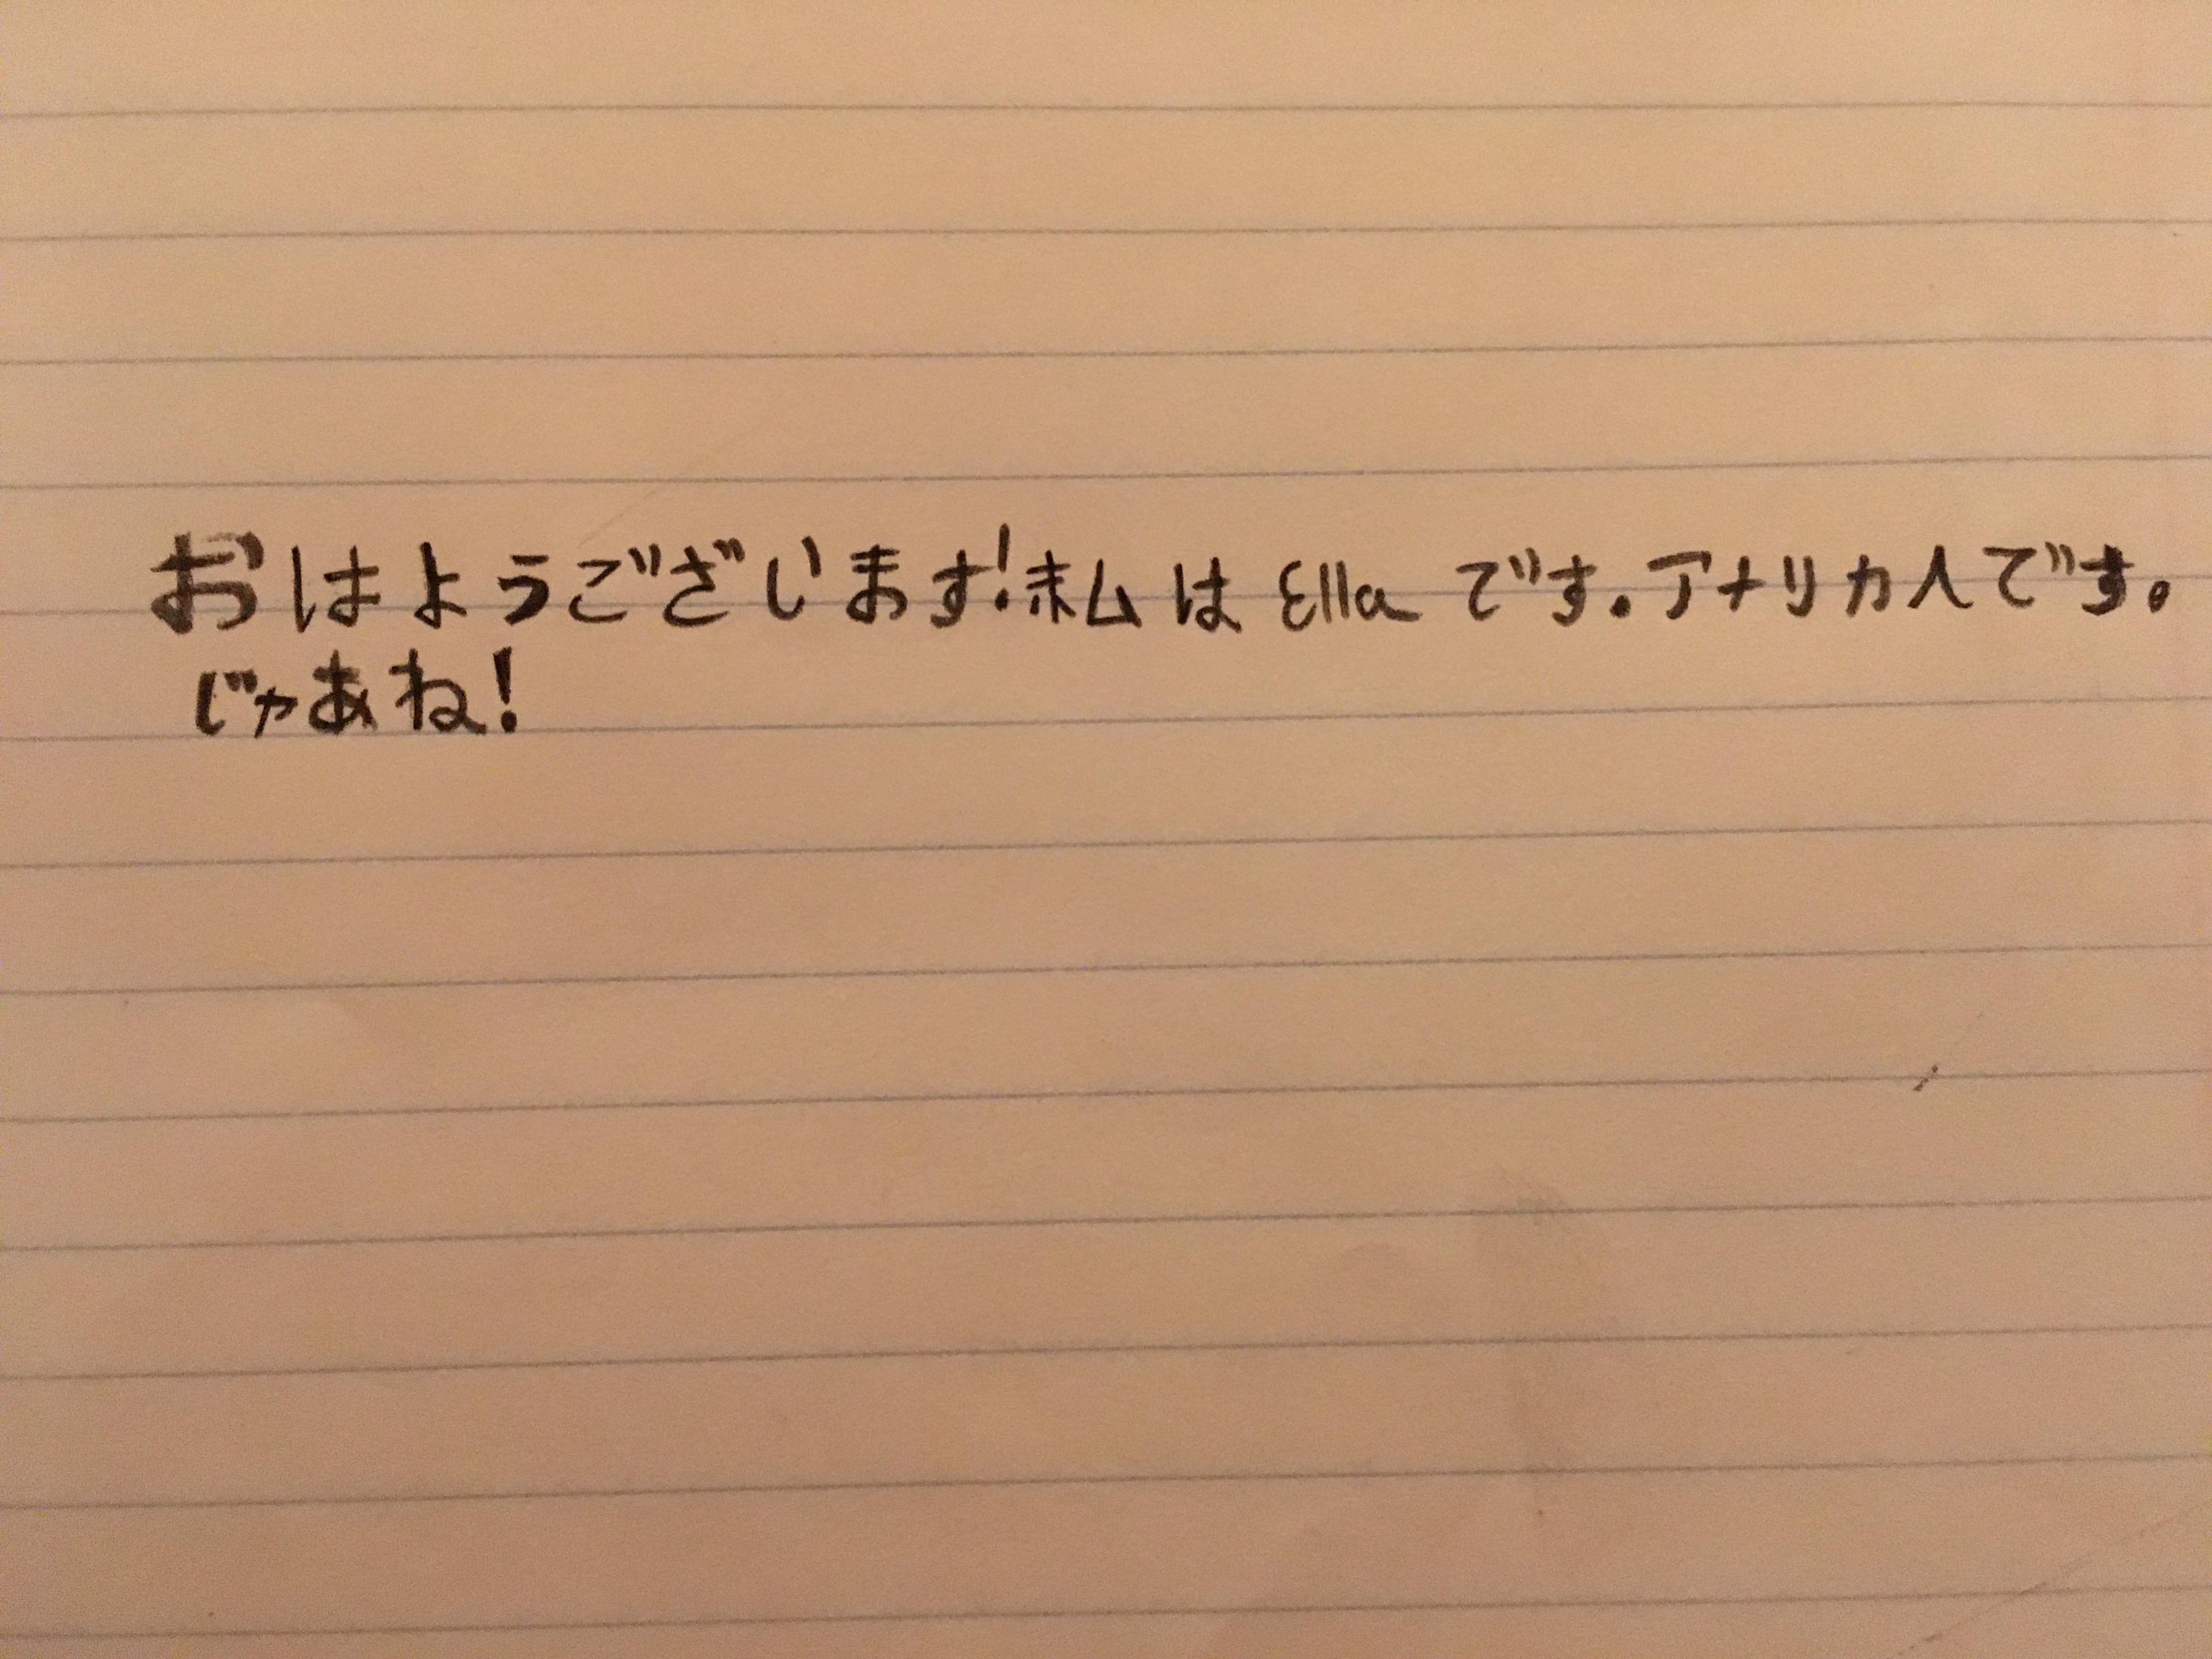 おはようございます!私は Ella です.アナリカ人です。
じゃあね!